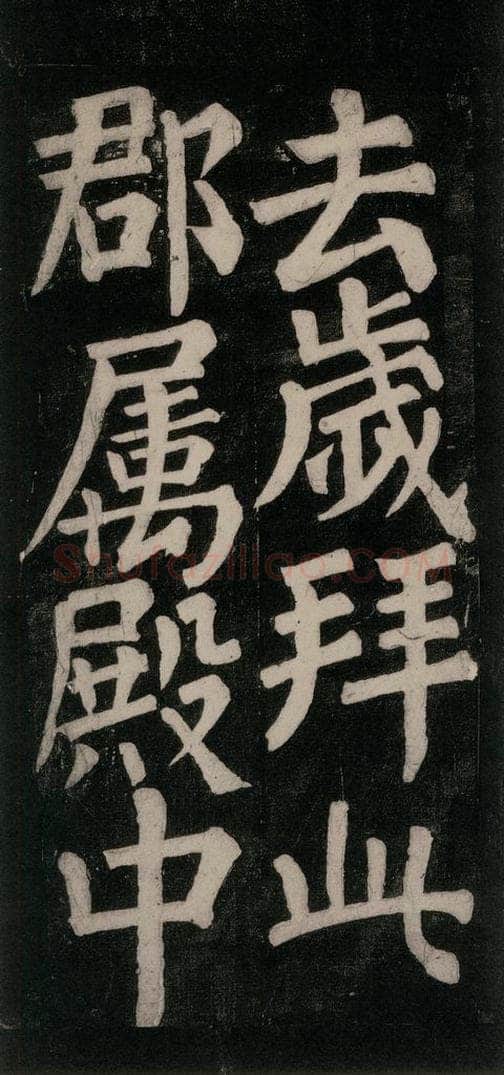 去歲拜此
郡属殿中
shufaziliao.COM